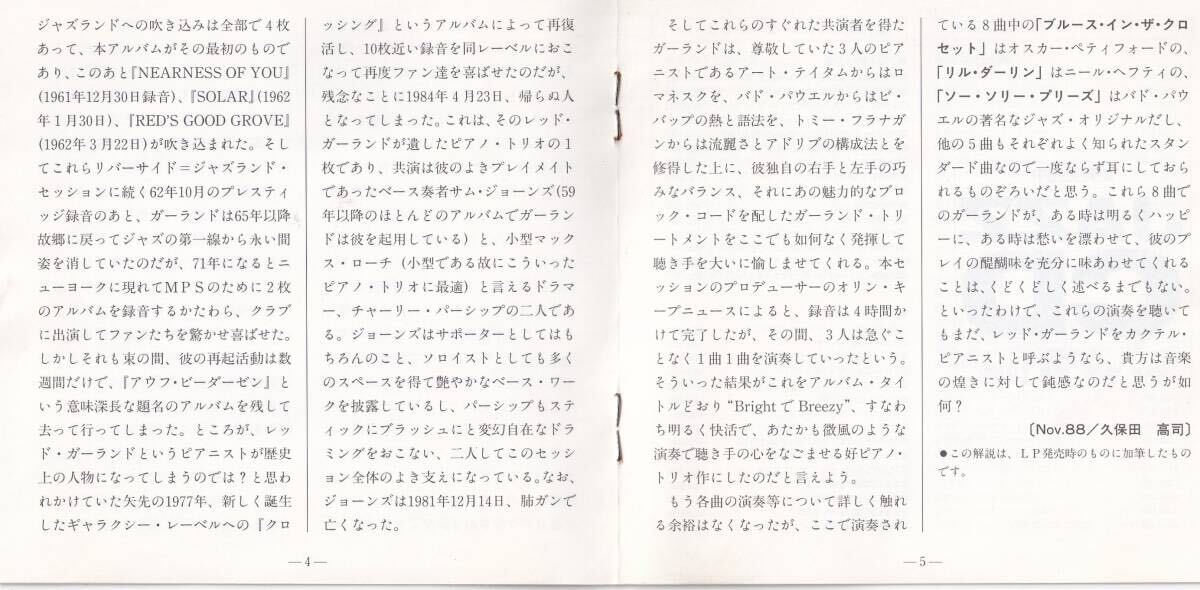 ジャズランドへの吹き込みは全部で4枚
あって、本アルバムがその最初のもので
あり、このあと『NEARNESS OF YOU』
(1961年12月30日録音)、『SOLAR』(1962
年1月30日)、『RED'S GOOD GROVE』
(1962年3月22日)が吹き込まれた。そし
てこれらリバーサイド＝ジャズランド・
セッションに続く62年10月のプレスティ
ッジ録音のあと、ガーランドは65年以降
故郷に戻ってジャズの第一線から永い間
姿を消していたのだが、71年になるとニ
ューヨークに現れてMPSのために2枚
のアルバムを録音するかたわら、クラブ
に出演してファンたちを驚かせ喜ばせた。
しかしそれも束の間、彼の再起活動は数
週間だけで、『アウフ・ビーダーゼン』と
いう意味深長な題名のアルバムを残して
去って行ってしまった。ところが、レッ
ド・ガーランドというピアニストが歴史
上の人物になってしまうのでは？と思わ
れかけていた矢先の1977年、新しく誕生
したギャラクシー・レーベルへの『クロ
ッシング』というアルバムによって再復
活し、10枚近い録音を同レーベルにおこ
なって再度ファン達を喜ばせたのだが、
残念なことに1984年4月23日、帰らぬ人
となってしまった。これは、そのレッド・
ガーランドが遺したピアノ・トリオの1
枚であり、共演は彼のよきプレイメイト
であったベース奏者サム・ジョーンズ(59
年以降のほとんどのアルバムでガーラン
ドは彼を起用している)と、小型マック
ス・ローチ(小型である故にこういった
ピアノ・トリオに最適)と言えるドラマ
ー、チャーリー・パーシップの二人であ
る。ジョーンズはサポーターとしてはも
ちろんのこと、ソロイストとしても多く
のスペースを得て艶やかなベース・ワー
クを披露しているし、パーシップもステ
ィックにブラッシュにと変幻自在なドラ
ミングをおこない、二人してこのセッシ
ョン全体のよき支えになっている。なお、
ジョーンズは1981年12月14日、肺ガンで
亡くなった。
—4—
そしてこれらのすぐれた共演者を得た
ガーランドは、尊敬していた3人のピア
ニストであるアート・テイタムからはロ
マネスクを、バド・パウエルからはビ・
バップの熱と語法を、トミー・フラナガ
ンからは流麗さとアドリブの構成法とを
修得した上に、彼独自の右手と左手の巧
みなバランス、それにあの魅力的なブロ
ック・コードを配したガーランド・トリ
ートメントをここでも如何なく発揮して
聴き手を大いに愉しませてくれる。本セ
ッションのプロデューサーのオリン・キ
ープニュースによると、録音は4時間か
けて完了したが、その間、3人は急ぐこ
となく1曲1曲を演奏していったという。
そういった結果がこれをアルバム・タイ
トルどおり“BrightでBreezy”、すなわ
ち明るく快活で、あたかも微風のような
演奏で聴き手の心をなごませる好ピアノ・
トリオ作にしたのだと言えよう。
もう各曲の演奏等について詳しく触れ
る余裕はなくなったが、ここで演奏され
ている8曲中の「ブルース・イン・ザ・クロ
セット」はオスカー・ペティフォードの、
「リル・ダーリン」はニール・ヘフティの、
「ソー・ソリー・プリーズ」はバド・パウ
エルの著名なジャズ・オリジナルだし、
他の5曲もそれぞれよく知られたスタン
ダード曲なので一度ならず耳にしておら
れるものぞろいだと思う。これら8曲で
のガーランドが、ある時は明るくハッピ
ーに、ある時は愁いを漂わせて、彼のプ
レイの醍醐味を充分に味あわせてくれる
ことは、くどくどしく述べるまでもない。
といったわけで、これらの演奏を聴いて
もまだ、レッド・ガーランドをカクテル・
ピアニストと呼ぶようなら、貴方は音楽
の煌きに対して鈍感なのだと思うが如
何？
〔Nov.88／久保田　高司〕
●この解説は、LP発売時のものに加筆したもの
です。
—5—